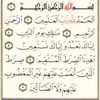 بِسْمِ اللَّهِ الرَّحْمَٰنِ الرَّحِيمِ
الْحَمْدُ لِلَّهِ رَبِّ الْعَٰلَمِينَ
الرَّحْمَٰنِ الرَّحِيمِ مَٰلِكِ يَوْمِ الدِّينِ
إِيَّاكَ نَعْبُدُ وَإِيَّاكَ نَسْتَعِينُ اهْدِنَا
الصِّرَٰطَ الْمُسْتَقِيمَ صِرَٰطَ الَّذِينَ
أَنْعَمْتَ عَلَيْهِمْ غَيْرِ الْمَغْضُوبِ
عَلَيْهِمْ وَلَا الضَّآلِّينَ